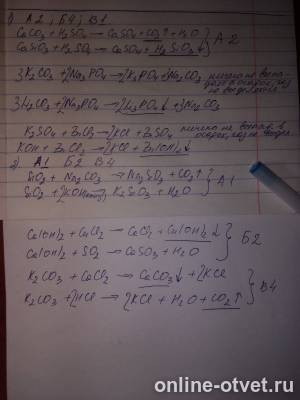 1) А2, Б4, В1
CaCO₃ + H₂SO₄ → CaSO₄ + CO₂↑ + H₂O } А2
CaSiO₃ + H₂SO₄ → CaSO₄ + H₂SiO₃↓
3K₂CO₃ + 2Na₃PO₄ → 2K₃PO₄ + 3Na₂CO₃ ничего не
3Li₂CO₃ + 2Na₃PO₄ → 2Li₃PO₄↓ + 3Na₂CO₃
K₂SO₄ + ZnCl₂ → 2KCl + ZnSO₄ ничего не
KOH + ZnCl₂ → 2KCl + Zn(OH)₂↓
2) А1 Б2 В4
SiO₂ + Na₂CO₃ → Na₂SiO₃ + CO₂↑ } А1
SiO₂ + 2KOH → K₂SiO₃ + H₂O
Ca(OH)₂ + CuCl₂ → CaCl₂ + Cu(OH)₂↓ } Б2
Ca(OH)₂ + SO₂ → CaSO₃ + H₂O
K₂CO₃ + CaCl₂ → CaCO₃↓ + 2KCl } В4
K₂CO₃ + 2HCl → 2KCl + H₂O + CO₂↑
online-otvet.ru